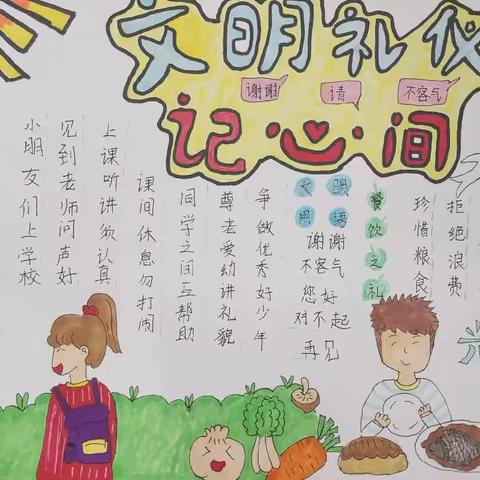 文明礼仪
谢谢
请
不客气
记心间
小朋友们上学校
见到老师问声好
上课听讲须认真
课间休息勿打闹
同学之间互帮助
尊老爱幼讲礼貌
争做优秀好少年
文明
用语
谢谢
不客气
您好
对不起
再见
餐饮之礼
珍惜粮食
拒绝浪费